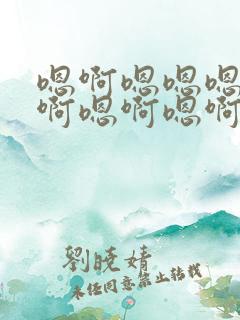 嗯啊嗯嗯嗯
啊嗯啊嗯啊
劉曉婧
未经同意禁止转载